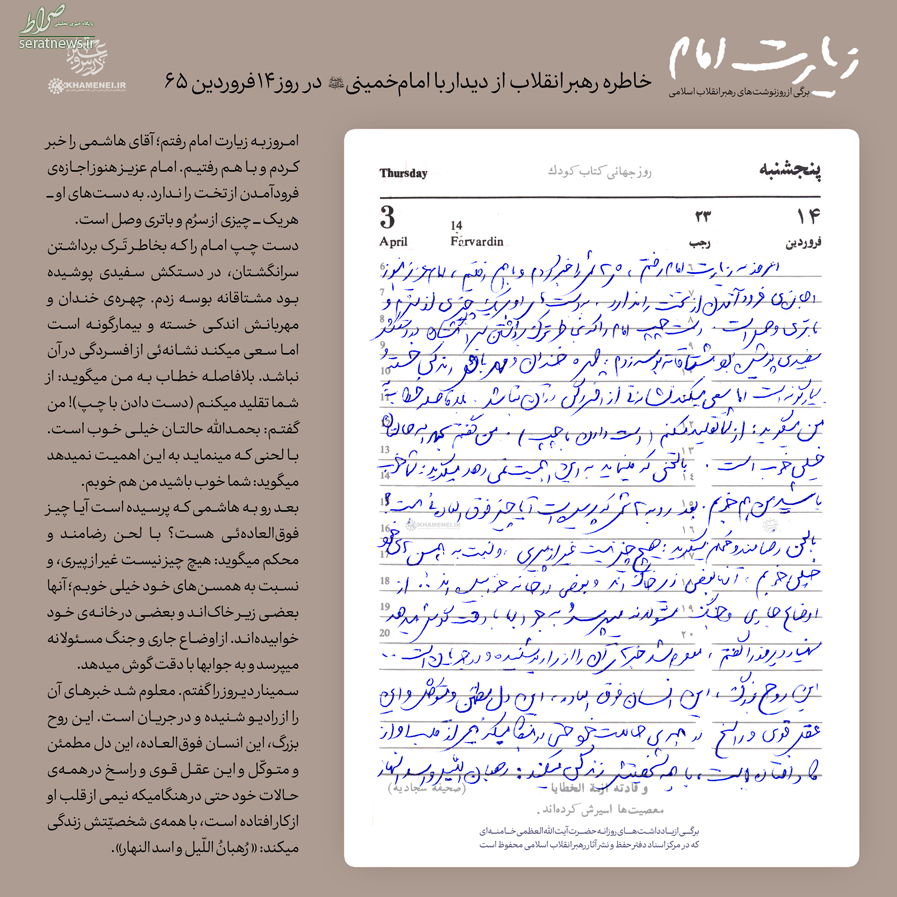 صراط
پایگاه خبری تحلیلی
seratnews.ir
KHAMENEI.IR
زیارت امام
برگی از روزنوشت‌های رهبر انقلاب اسلامی
خاطره رهبر انقلاب از دیدار با امام‌خمینی در روز ۱۴ فروردین ۶۵
امـروز بـه زیـارت امام رفتم؛ آقای هاشـمی را خبر
کـردم و بـا هـم رفتیـم. امـام عزیـز هنوز اجازه‌ی
فرودآمـدن از تخت را نـدارد. به دست‌های اوـ
هر یک ـ چیزی از سرُم و باتری وصل است.
دسـت چـپ امـام را کـه بخاطـر تَـرک برداشـتن
سرانگشـتان، در دسـتکش سـفیدی پوشـیده
بـود مشـتاقانه بوسـه زدم. چهـره‌ی خنـدان و
مهربانـش اندکـی خسـته و بیمارگونـه اسـت
امـا سـعی میکنـد نشـانه‌ئی از افسـردگی در آن
نباشـد. بلافاصلـه خطـاب بـه مـن میگویـد: از
شـما تقلید میکنـم (دسـت دادن با چـپ)! من
گفتـم: بحمـدالله حالتـان خیلـی خـوب اسـت.
بـا لحنـی که مینمایـد به این اهمیت نمیدهد
میگوید: شما خوب باشید من هم خوبم.
بعد رو به هاشـمی که پرسیده است آیا چیز
فوق‌العاده‌ئـی هسـت؟ بـا لحـن رضامنـد و
محکم میگوید: هیچ چیز نیست غیر از پیری، و
نسبت به همسـن‌های خود خیلی خوبم؛ آنها
بعضـی زیـر خاک‌انـد و بعضـی در خانه‌ی خـود
خوابیده‌انـد. از اوضـاع جاری و جنگ مسـئولانه
میپرسد و به جوابها با دقت گوش میدهد.
سـمینار دیـروز را گفتم. معلوم شـد خبرهای آن
را از رادیـو شـنیده و در جریـان اسـت. این روح
بزرگ، این انسـان فوق‌العـاده، این دل مطمئن
و متوکّل و این عقل قوی و راسخ در همه‌ی
حـالات خود حتی در هنگامیکه نیمی از قلب او
از کار افتاده است، با همه‌ی شخصیّتش زندگی
میکند: «رُهبانُ اللّیل و اسد النهار».
Thursday
روز جهانی کتاب کودک
پنجشنبه
3
14
۲۳
۱۴
April
Farvardin
رجب
فروردین
امروز به زیارت امام رفتم، هاشمی را خبر کردم و با هم رفتیم، امام عزیز هنوز
اجازه‌ی فرود آمدن از تخت را ندارد، به دستهای او هر یک چیزی از سرم و
باتری وصل است. دست چپ امام را که بخاطر ترک برداشتن سرانگشتان در دستکش
سفیدی پوشیده بود مشتاقانه بوسه زدم، چهره خندان و مهربانش اندکی خسته و
بیمارگونه است اما سعی میکند نشانه‌ئی از افسردگی در آن نباشد. بلافاصله خطاب به
من میگوید: از شما تقلید میکنم (دست دادن با چپ). من گفتم بحمدالله حالتان
خیلی خوب است. با لحنی که مینماید به این اهمیت نمی دهد میگوید: شما خوب
باشید من هم خوبم. بعد رو به هاشمی که پرسیده است آیا چیز فوق العاده‌ئی هست؟
با لحن رضامند و محکم میگوید: هیچ چیز نیست غیر از پیری، و نسبت به همسن های خود
خیلی خوبم، آنها بعضی زیر خاک‌اند و بعضی در خانه خوابیده‌اند .. از
اوضاع جاری و جنگ مسئولانه میپرسد و به جوابها با دقت گوش میدهد
سمینار دیروز را گفتم، معلوم شد خبرهای آن را از رادیو شنیده و در جریان است ...
این روح بزرگ، این انسان فوق العاده، این دل مطمئن و متوکل و این
عقل قوی و راسخ در همه‌ی حالات خود حتی در هنگامیکه نیمی از قلب او از
کار افتاده است، با همه شخصیتش زندگی میکند: رهبان اللیل و اسد النهار
و قادته ازمة الخطایا
(صحیفه سجادیه)
معصیت‌ها اسیرش کرده‌اند.
برگـی از یادداشت‌هـای روزانـه حضـرت آیـت‌الله‌العظمی خامنـه‌ای
که در مرکز اسناد دفتر حفظ و نشر آثار رهبر انقلاب اسلامی محفوظ است